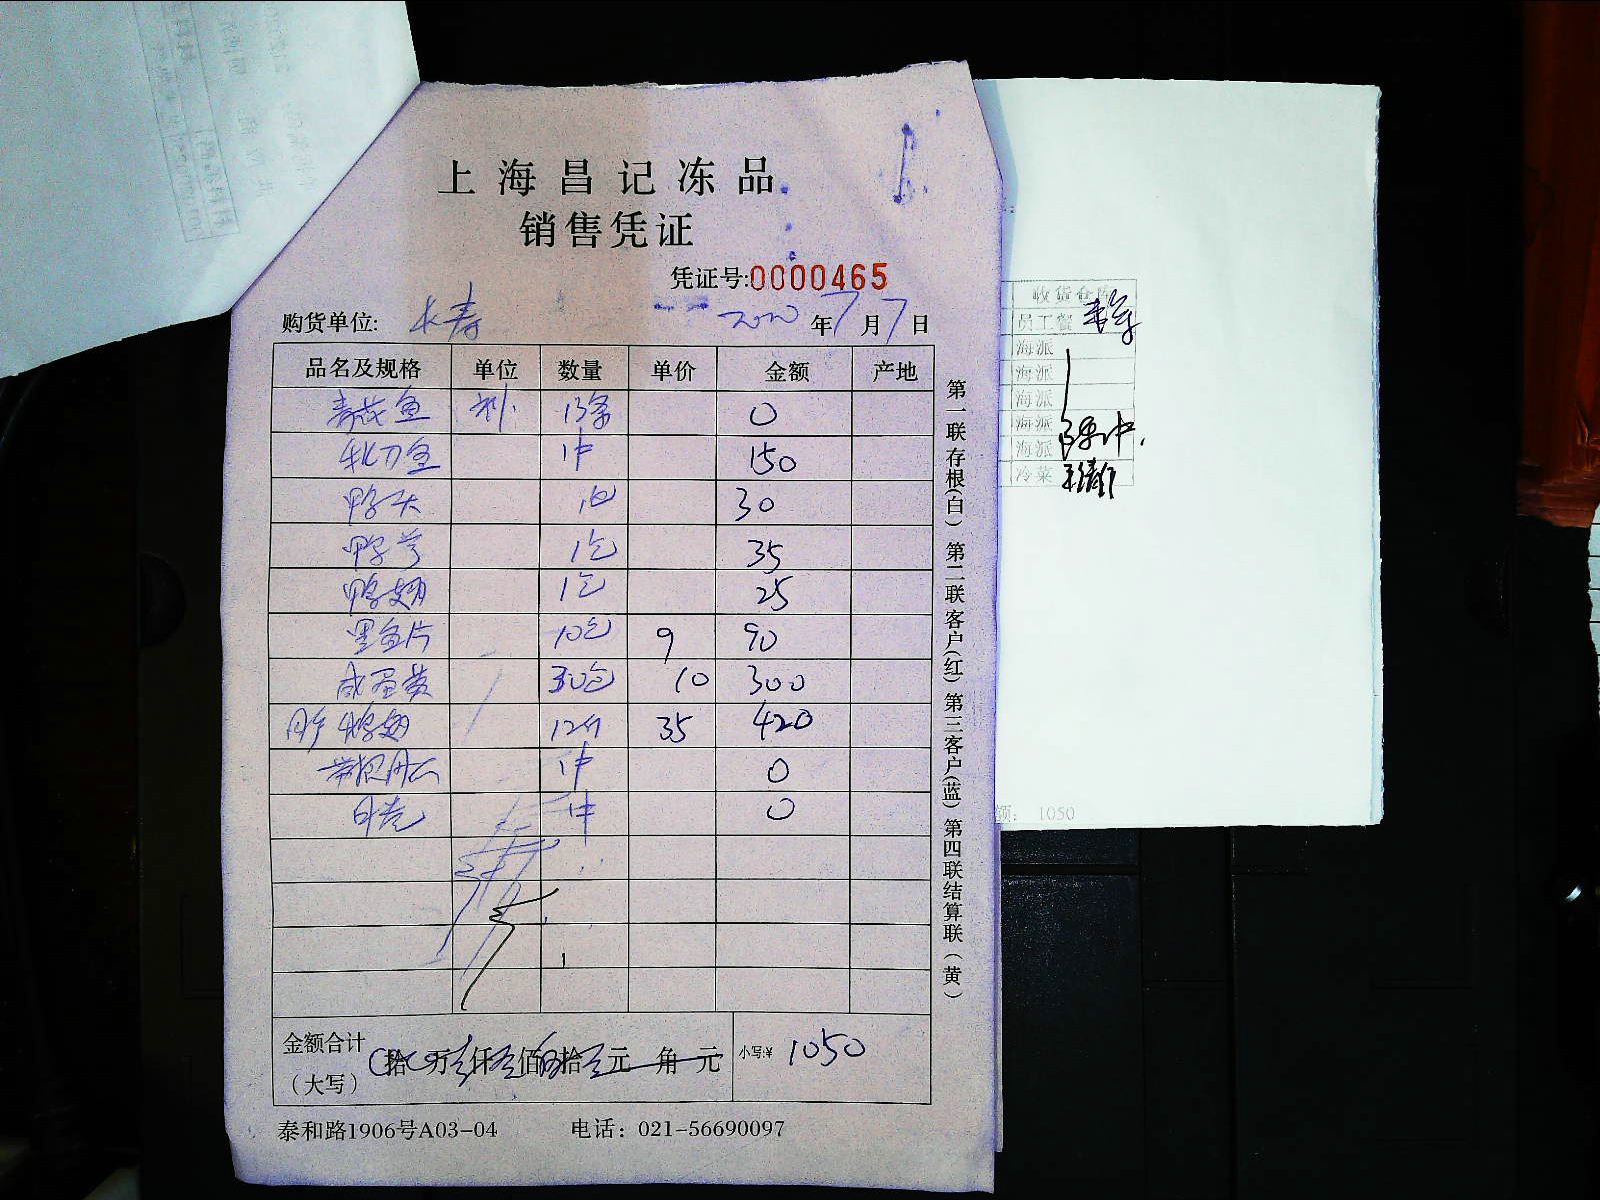 上海昌记冻品
销售凭证
凭证号:0000465
购货单位: 长寿 2020年7月7日
品名及规格 单位 数量 单价 金额 产地
青花鱼 13条 0
秋刀鱼 1件 150
鸭头 1包 30
鸭 1包 35
鸭翅 1包 25
黑鱼片 10包 9 90
咸蛋黄 30包 10 300
鸭翅 12 35 420
1件 0
1件 0
金额合计
(大写) 拾 万 仟 佰 拾 元 角 元 小写:¥ 1050
泰和路1906号A03-04 电话: 021-56690097
第一联存根(白) 第二联客户(红) 第三客户(蓝) 第四联结算联(黄)
收货仓库
员工餐
海派
海派
海派
海派
海派
冷菜
额: 1050